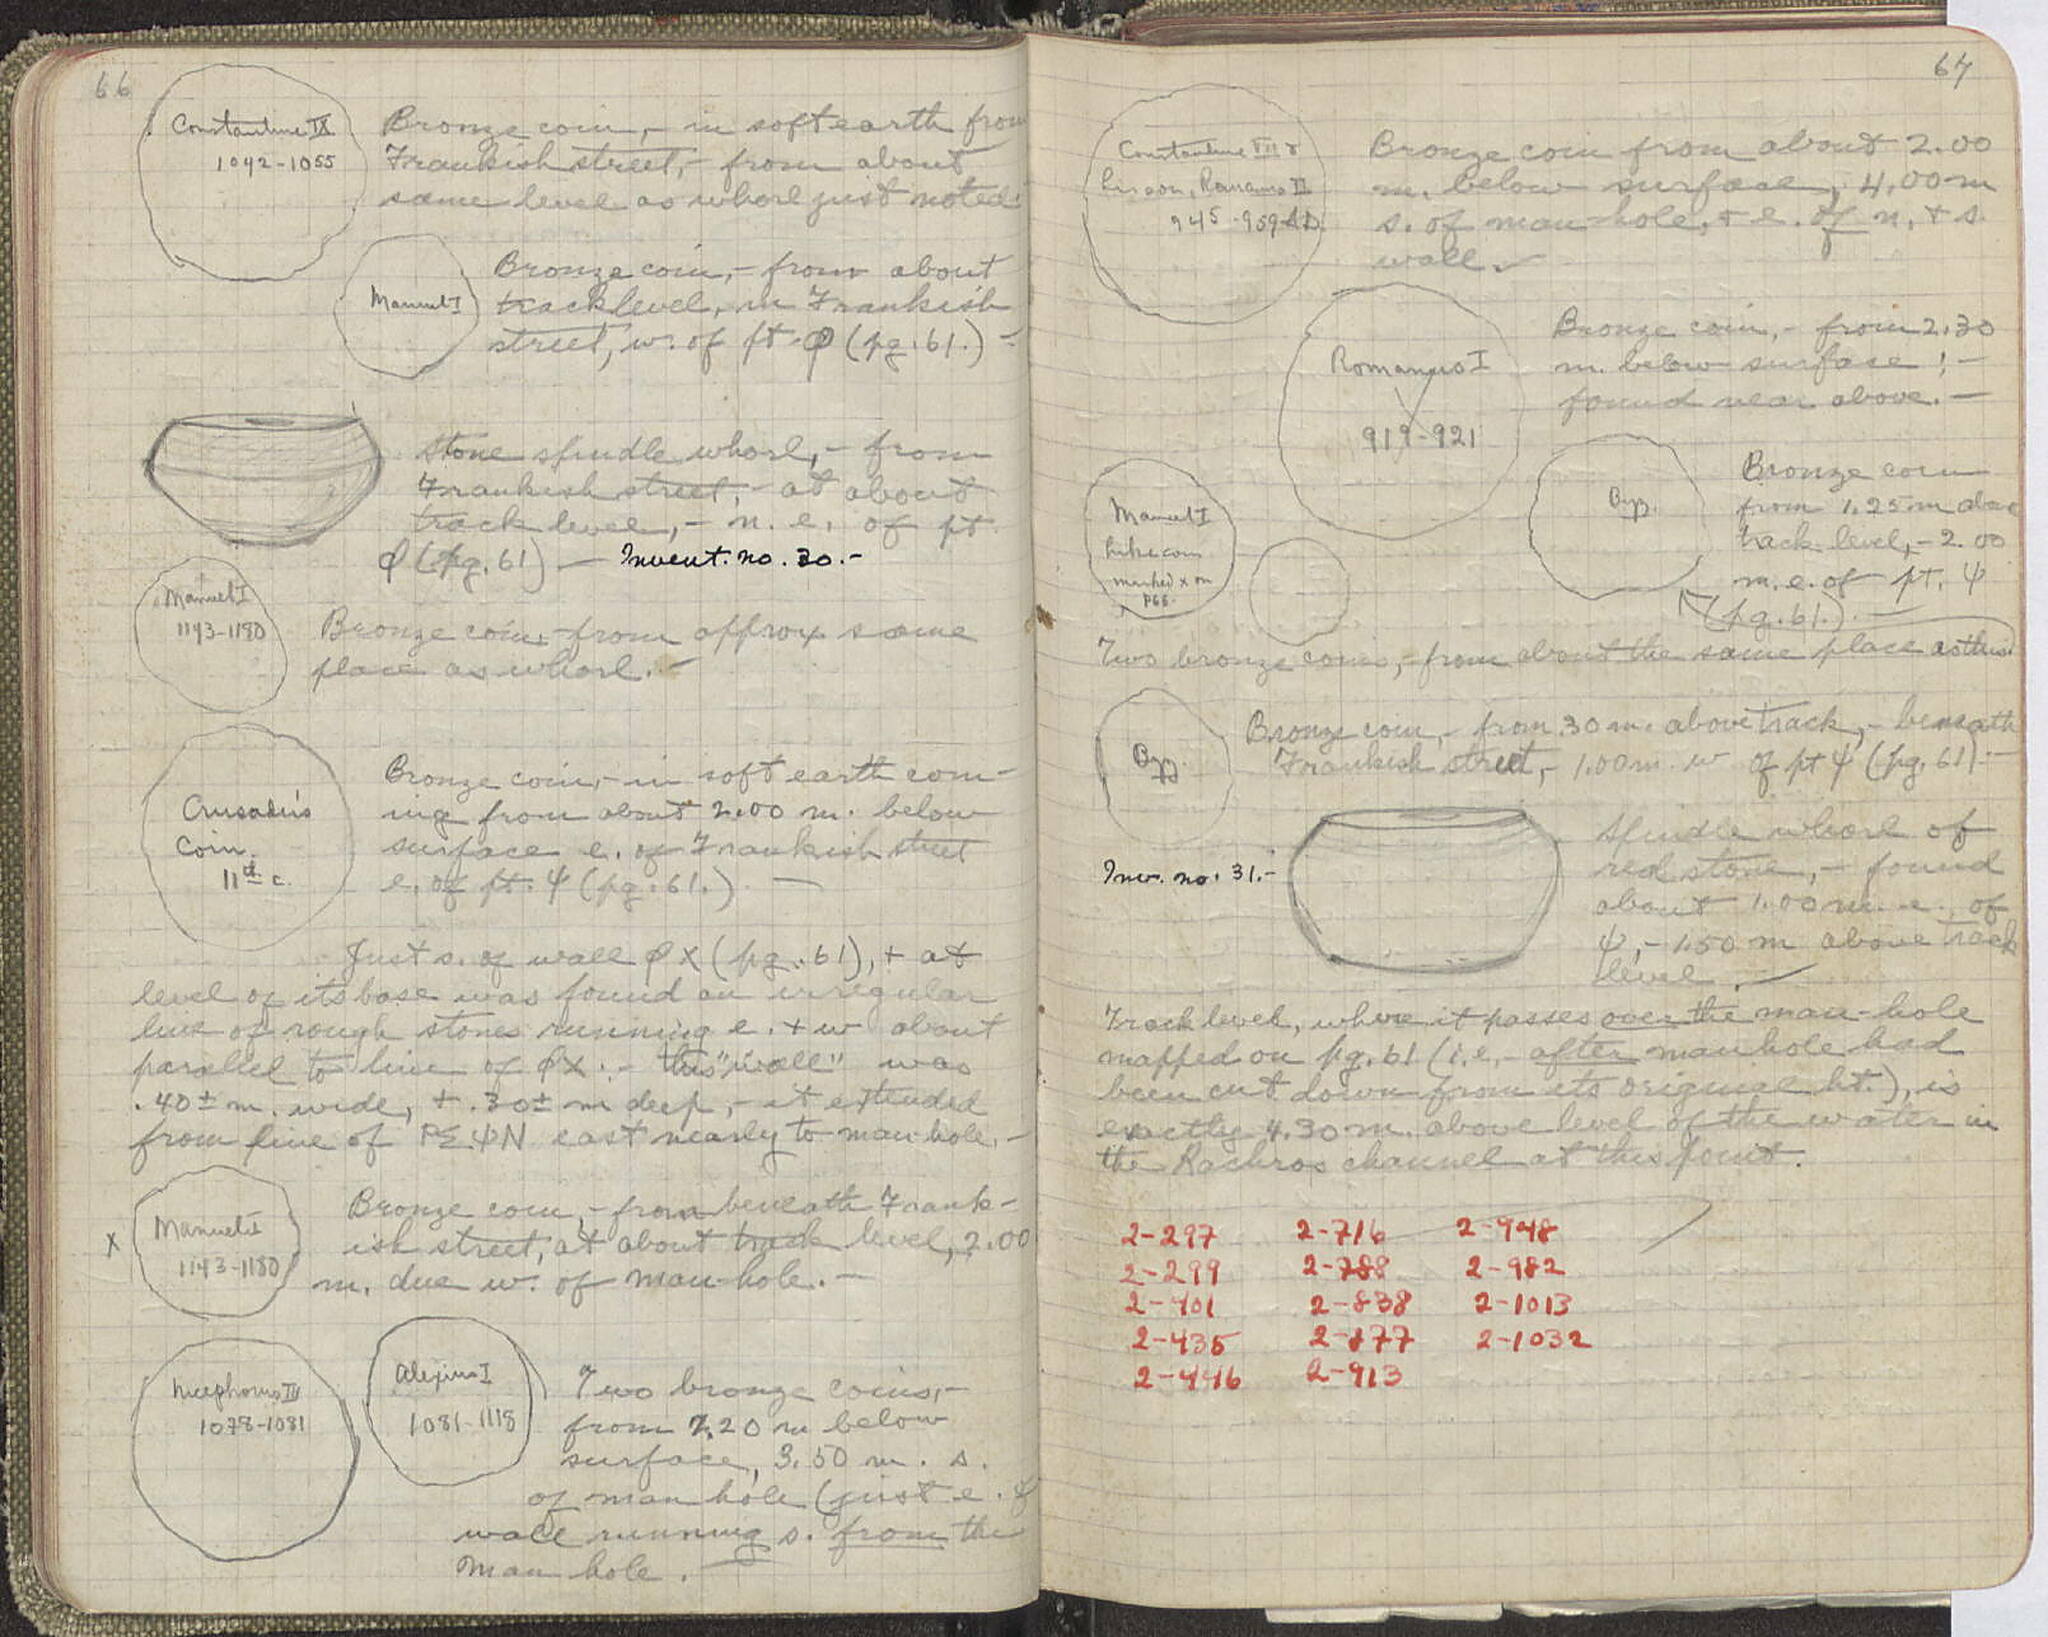 66
Constantine IX
1042-1055
Bronze coin, - in soft earth from
Frankish street, - from about
same level as whorl just noted.
Manuel I
Bronze coin, - from about
track level, in Frankish
street, w. of pt φ (pg. 61.) -
stone spindle whorl, - from
Frankish street, - at about
track level, - n. e. of pt.
φ (pg. 61) — Invent. no. 30. -
Manuel I
1143-1180
Bronze coin, - from approx same
place as whorl. -
Crusaders
Coin.
11th c.
Bronze coin, - in soft earth com-
ing from about 2.00 m. below
surface e. of Frankish street
e. of pt. ψ (pg. 61.) —
Just s. of wall φ X (pg. 61), + at
level of its base was found an irregular
line of rough stones running e. + w about
parallel to line of φX. - this "wall" was
.40± m. wide, + .30± m deep, - it extended
from line of ΡΣΨΝ east nearly to man hole, -
X
Manuel I
1143-1180
Bronze coin, - from beneath Frank-
ish street, at about track level, 2.00
m. due w. of man-hole. -
Nicephorus III
1078-1081
Alexius I
1081-1118
Two bronze coins, -
from 2.20 m below
surface, 3.50 m. s.
of man hole (just e. of
wall running s. from the
man hole. —
67
Constantine VII &
his son, Romanus II
945-959 A.D.
Bronze coin from about 2.00
m. below surface, 4.00 m
s. of man-hole, + e. of n. + s.
wall.
Romanus I
919-921
Bronze coin, - from 2.30
m. below surface! -
found near above. -
Byz.
Bronze coin
from 1.25 m above
track level, - 2.00
m. e. of pt. ψ
(pg. 61.) —
Manuel I
Like coin
marked x on
p66.
Two bronze coins, - from about the same place as this.
Byz.
Bronze coin, - from .30 m. above track, - beneath
Frankish street, - 1.00 m. w of pt ψ (pg. 61) -
Inv. no. 31. -
Spindle whorl of
red stone, - found
about 1.00 m. e. of
ψ, - 1.50 m above track
level. —
Track level, where it passes over the man-hole
mapped on pg. 61 (i.e. - after manhole had
been cut down from its original ht.), is
exactly 4.30 m. above level of the water in
the channel at this point.
2-297 2-716 2-948
2-299 2-788 2-982
2-401 2-838 2-1013
2-435 2-877 2-1032
2-446 2-913